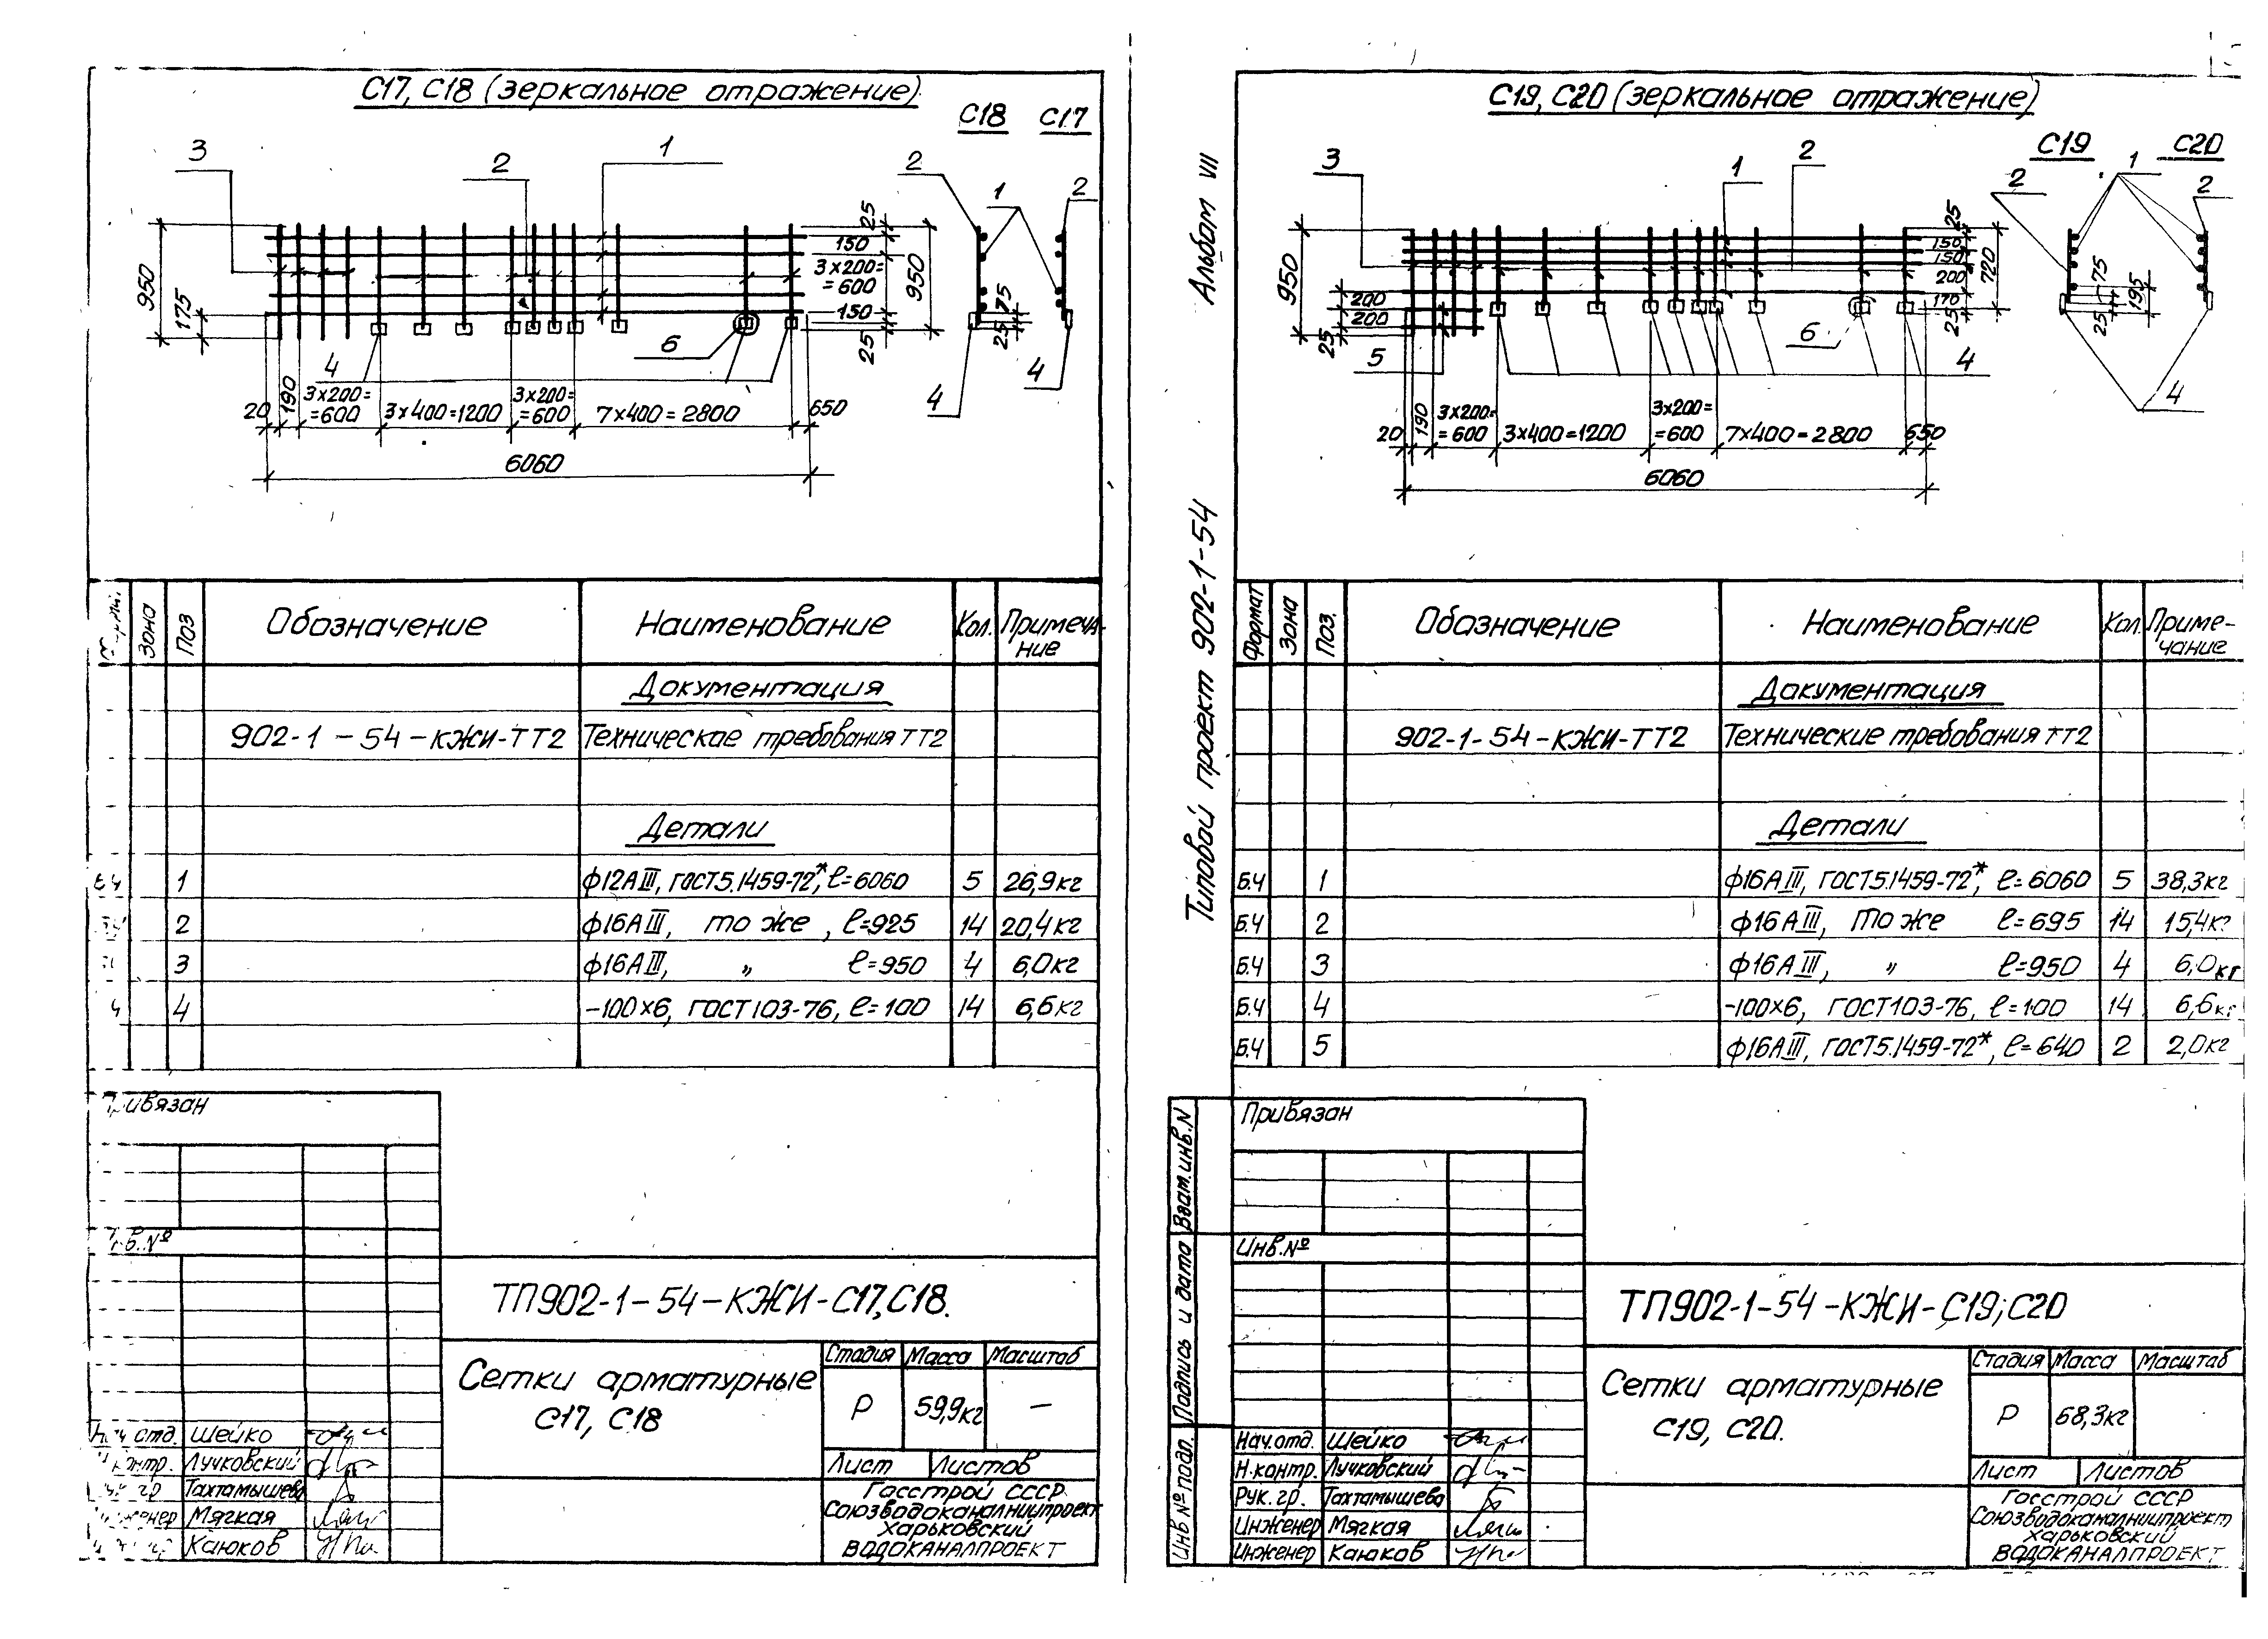 С17, С18 (зеркальное отражение)
С18 С17
3 2 1 2 1 2
950 175
25
150
3×200=
=600
150
25
950
75
25
4 6 4 4
20 190 3×200=
=600 3×400=1200 3×200=
=600 7×400=2800 650
6060
Зона Поз Обозначение Наименование Кол. Примеча-
ние
Документация
902-1-54-КЖИ-ТТ2 Технические требования ТТ2
Детали
1 ф12АIII, ГОСТ5.1459-72*, ℓ=6060 5 26,9кг
2 ф16АIII, то же, ℓ=925 14 20,4кг
3 ф16АIII, „ ℓ=950 4 6,0кг
4 -100×6, ГОСТ103-76, ℓ=100 14 6,6кг
Привязан
ТП902-1-54-КЖИ-С17,С18.
Сетки арматурные
С17, С18
Стадия Масса Масштаб
Р 59,9кг —
Лист Листов
Госстрой СССР
Союзводоканалниипроект
Харьковский
ВОДОКАНАЛПРОЕКТ
отд. Шейко
Лучковский
Тахтамышева
Мягкая
Каюков
Альбом VII
Типовой проект 902-1-54
С19, С20 (зеркальное отражение)
С19 С20
3 1 2 2 1 2
950
200
200
25
25
150
150
200
170
25
720
75
195
25
5 6 4 4
20 190 3×200=
=600 3×400=1200 3×200=
=600 7×400=2800 650
6060
Формат Зона Поз. Обозначение Наименование Кол. Приме-
чание
Документация
902-1-54-КЖИ-ТТ2 Технические требования ТТ2
Детали
Б.Ч 1 ф16АIII, ГОСТ5.1459-72*, ℓ=6060 5 38,3кг
Б.Ч 2 ф16АIII, то же ℓ=695 14 15,4кг
Б.Ч 3 ф16АIII, „ ℓ=950 4 6,0кг
Б.Ч 4 -100×6, ГОСТ103-76, ℓ=100 14 6,6кг
Б.Ч 5 ф16АIII, ГОСТ5.1459-72*, ℓ=640 2 2,0кг
Привязан
Инв.№
Инв № подл. Подпись и дата Взам.инв.N
ТП902-1-54-КЖИ-С19,С20
Сетки арматурные
С19, С20.
Стадия Масса Масштаб
Р 68,3кг
Лист Листов
Госстрой СССР
Союзводоканалниипроект
Харьковский
ВОДОКАНАЛПРОЕКТ
Нач.отд. Шейко
Н.контр. Лучковский
Рук.гр. Тахтамышева
Инженер Мягкая
Инженер Каюков